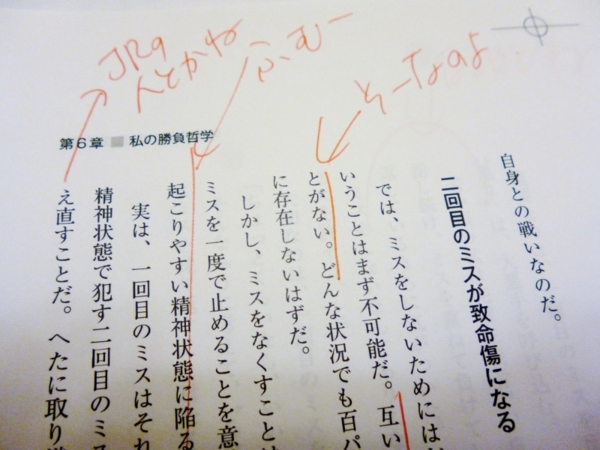 JRの
人とかね
ふむー
そーなのよ
第6章 ■ 私の勝負哲学
自身との戦いなのだ。
二回目のミスが致命傷になる
では、ミスをしないためには
いうことはまず不可能だ。互い
とがない。どんな状況でも百パ
に存在しないはずだ。
しかし、ミスをなくすことは
ミスを一度で止めることを意
起こりやすい精神状態に陥る
実は、一回目のミスはそれ
精神状態で犯す二回目のミス
え直すことだ。へたに取り